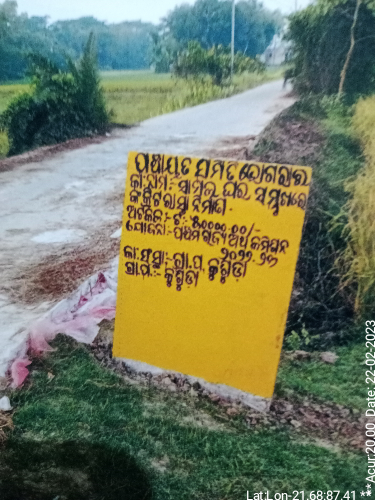 ପଞ୍ଚାୟତ ସମିତି ଭୋଗରାଇ
କା.ନାମ:- ସାସଭ ଘର ସମ୍ମୁଖରେ
କଂକ୍ରିଟ ରାସ୍ତା ନିର୍ମାଣ
ଅଟକଳ:- ଟ: ୫୦୦୦୦.୦୦/-
ଯୋଜନା:- ପଞ୍ଚମ ରାଜ୍ୟ ଅର୍ଥ କମିଶନ
୨୦୨୨-୨୩
କା.ସଂସ୍ଥା:- ଗ୍ରା.ପ. କୁରୁଡ଼ା
ଗ୍ରା.ପ.:- କୁରୁଡ଼ା
Lat:Lon-21.68:87.41 *** Acur:20.00 Date: 22-02-2023